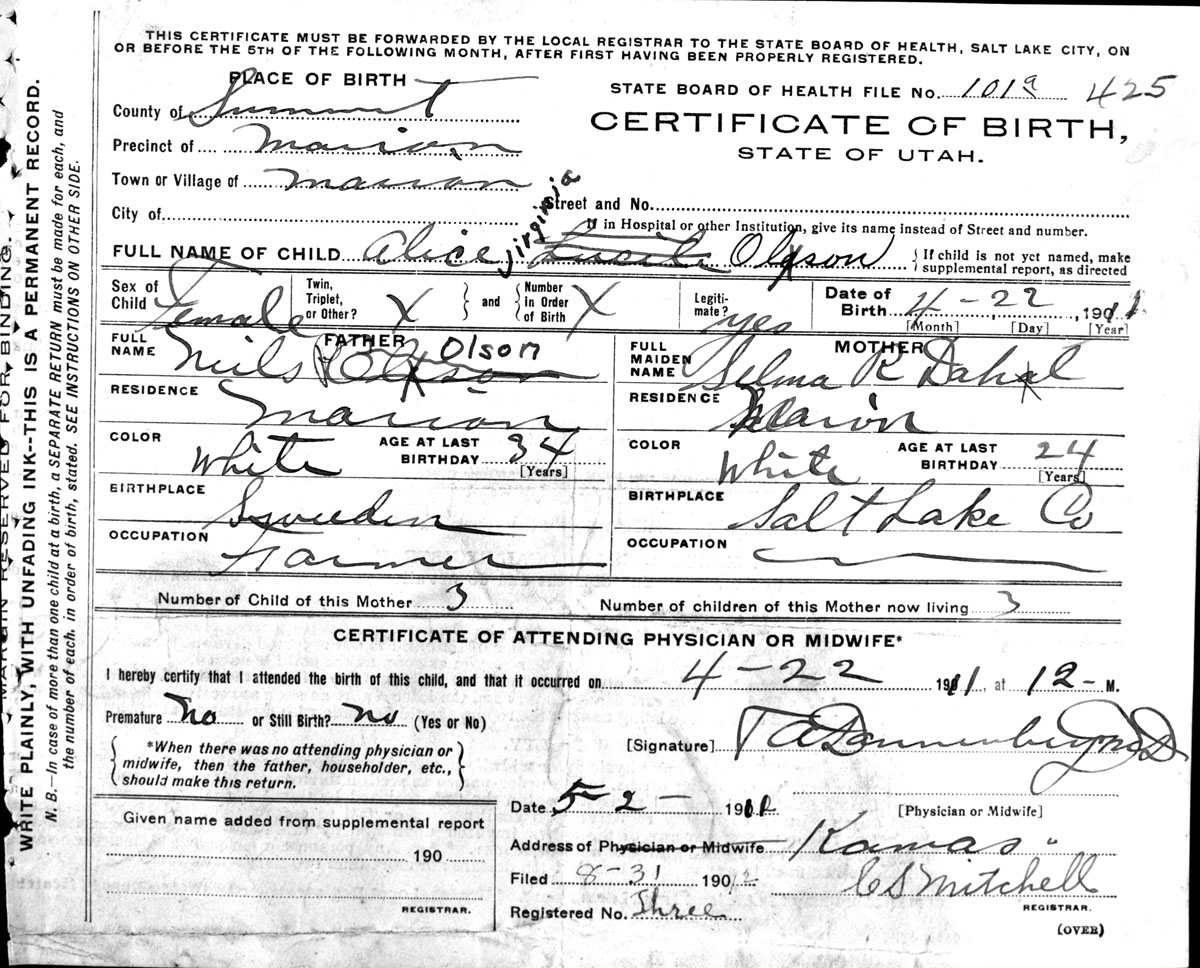 THIS CERTIFICATE MUST BE FORWARDED BY THE LOCAL REGISTRAR TO THE STATE BOARD OF HEALTH, SALT LAKE CITY, ON
OR BEFORE THE 5TH OF THE FOLLOWING MONTH, AFTER FIRST HAVING BEEN PROPERLY REGISTERED.
PLACE OF BIRTH
STATE BOARD OF HEALTH FILE No. 101a 425
County of Summit
CERTIFICATE OF BIRTH,
STATE OF UTAH.
Precinct of Marion
Town or Village of Marion
City of
Street and No.
If in Hospital or other Institution, give its name instead of Street and number.
Virginia
FULL NAME OF CHILD Alice Lucile Olson
{If child is not yet named, make
supplemental report, as directed
Sex of Child Female
Twin, Triplet, or Other? X
and
Number in Order of Birth X
Legitimate? yes
Date of Birth 4-22, 1911
[Month] [Day] [Year]
FATHER
FULL NAME Neils Olson
RESIDENCE Marion
COLOR White AGE AT LAST BIRTHDAY 34 [Years]
BIRTHPLACE Sweeden
OCCUPATION Farmer
MOTHER
FULL MAIDEN NAME Selma R Dahl
RESIDENCE Marion
COLOR White AGE AT LAST BIRTHDAY 24 [Years]
BIRTHPLACE Salt Lake Co
OCCUPATION
Number of Child of this Mother 3 Number of children of this Mother now living 3
CERTIFICATE OF ATTENDING PHYSICIAN OR MIDWIFE*
I hereby certify that I attended the birth of this child, and that it occurred on 4-22 1911, at 12-M.
Premature No or Still Birth? no (Yes or No)
{*When there was no attending physician or
midwife, then the father, householder, etc.,
should make this return.}
[Signature] T A Dannenberg MD
[Physician or Midwife]
Date 5-2- 1911
Given name added from supplemental report
190
REGISTRAR.
Address of Physician or Midwife Kamas
Filed 8-31 1912
C S Mitchell
REGISTRAR.
Registered No. Three
(OVER)
MARGIN RESERVED FOR BINDING.
WRITE PLAINLY, WITH UNFADING INK--THIS IS A PERMANENT RECORD.
N. B.—In case of more than one child at a birth, a SEPARATE RETURN must be made for each, and
the number of each, in order of birth, stated. SEE INSTRUCTIONS ON OTHER SIDE.